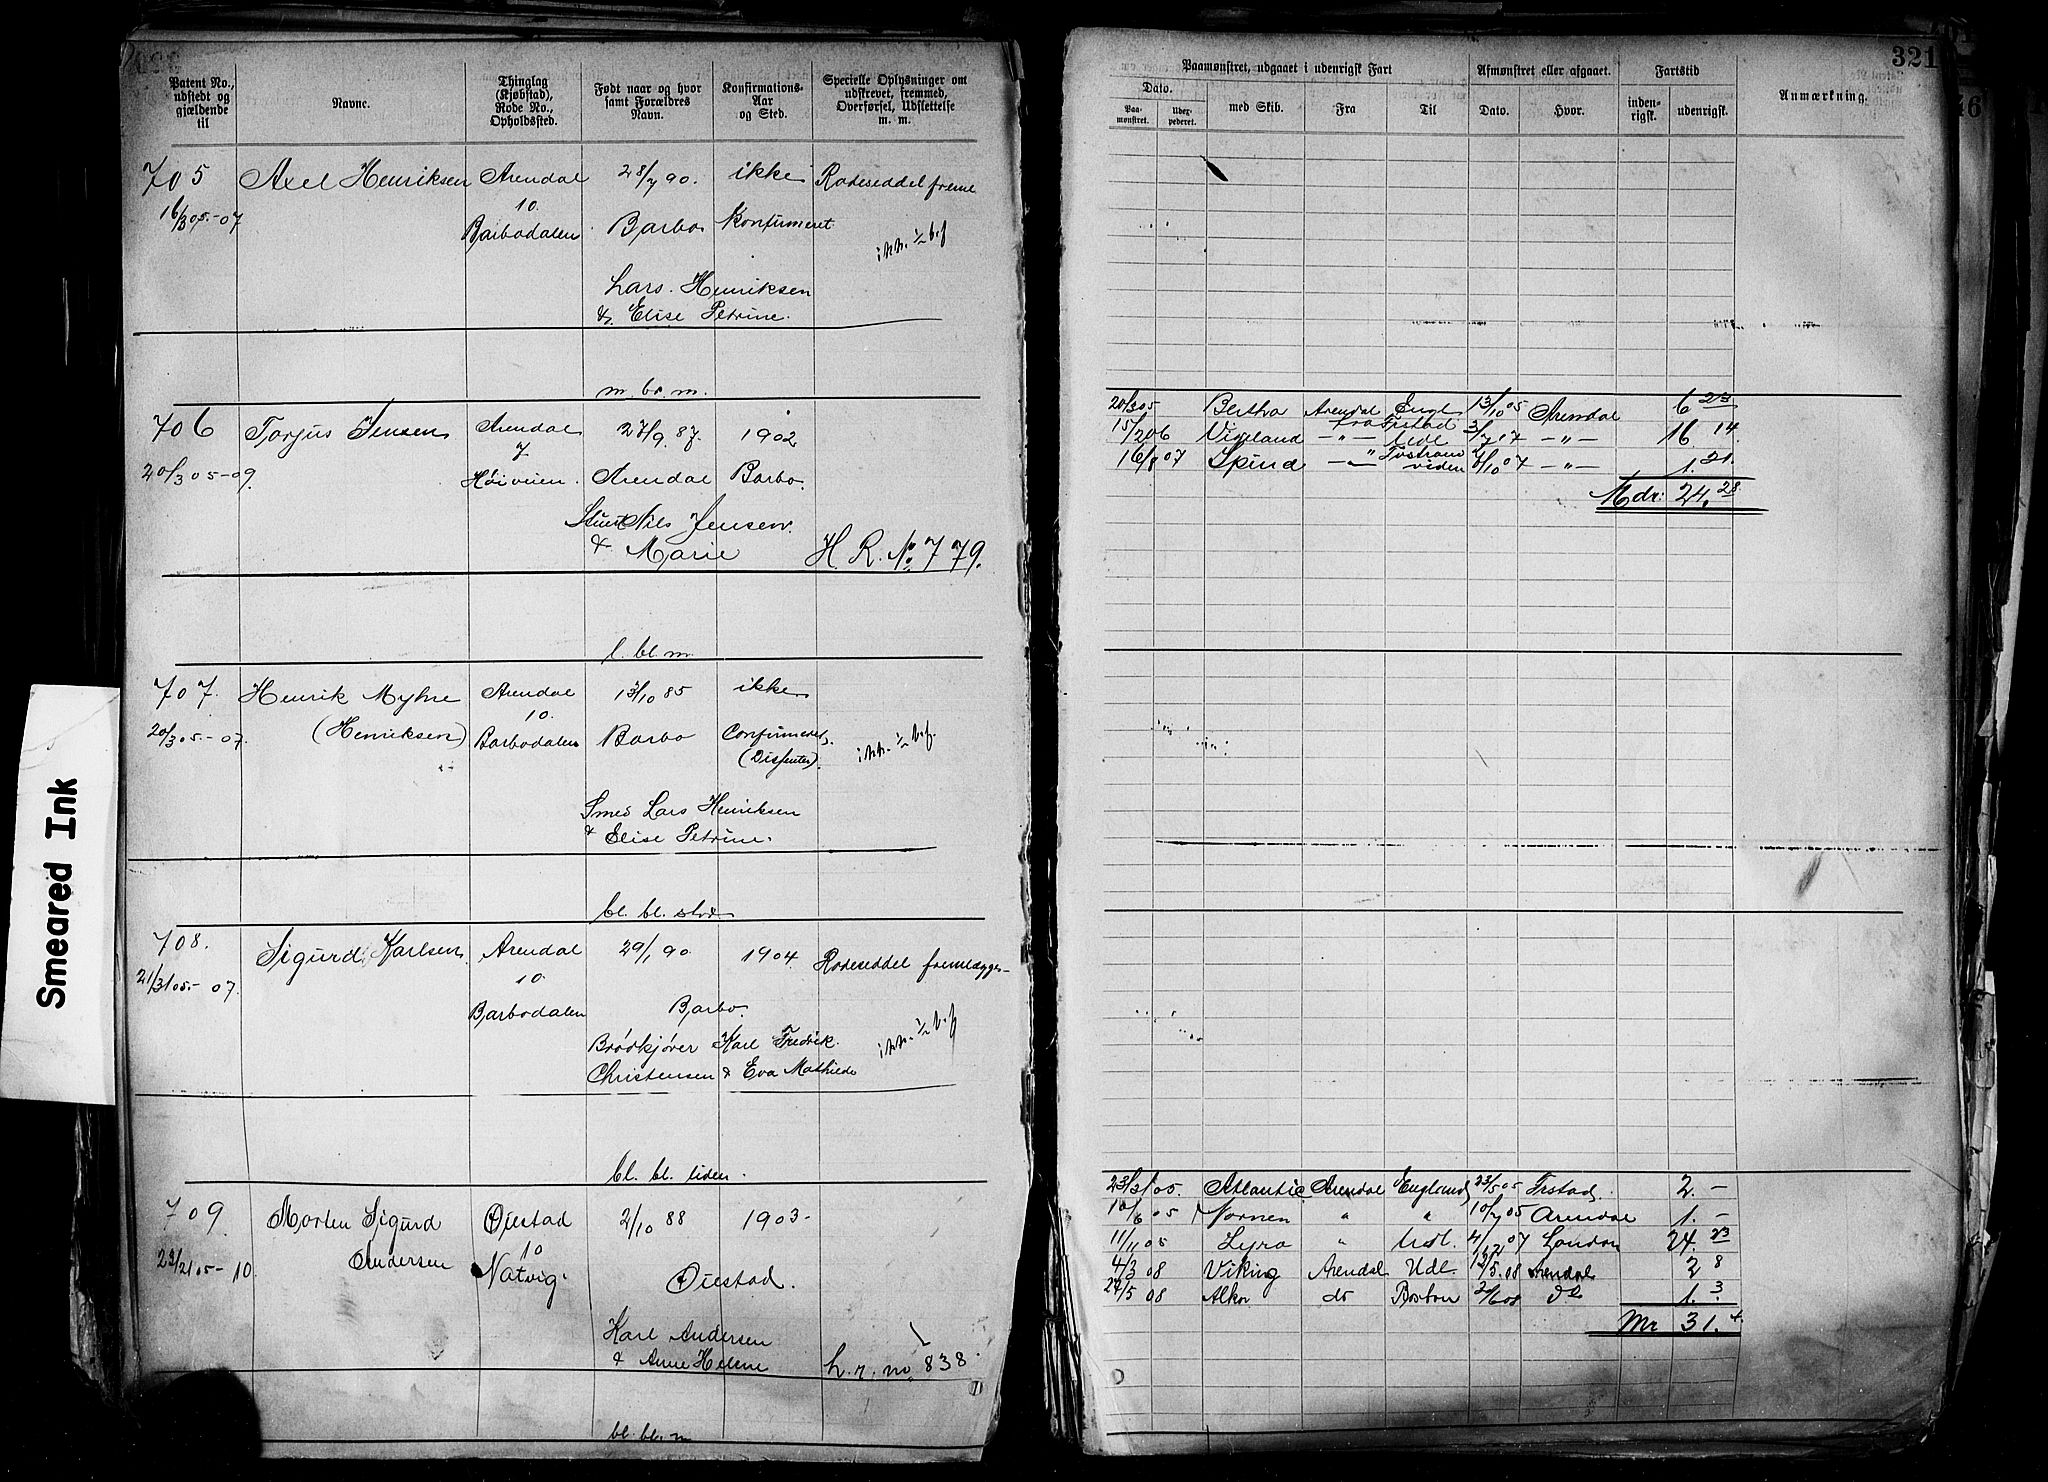 321
Patent No., udstedt og gjældende til
Navne.
Thinglag (Kjøbstad), Rode No., Opholdssted.
Født naar og hvor samt Forældres Navn.
Konfirmations-Aar og Sted.
Specielle Oplysninger om udskrevet, fremmed, Overførsel, Udslettelse m. m.
Paamønstret, udgaaet i udenrigsk Fart
Afmønstret eller afgaaet.
Fartstid
Anmærkning.
Dato.
Paa-mønstret.
med Skib.
Fra
Til
Dato.
Hvor.
inden-rigsk.
udenrigsk.
705 Axel Henriksen Arendal 28/7 90. ikke Rodeseddel frem
16/3 05.-07 10. Barbodalen Barbo Konfirmeret
Lars Henriksen
& Elise Petrine.
m. br. m.
706 Torjus Jensen Arendal 27/9. 87. 1902
7
20/3 05-09. Høiveien. Arendal Barbo.
Nils Jensen
& Marie H. R. No. 779.
20/3 05 Bertha Arendal Engl 13/10 05 Arendal 6 23
15/2 06 Vigeland -"- 16 14
16/8 07 Spind -"- 10 07 -"- 1. 21.
Mdr: 24. 28
l. bl. m
707. Henrik Myhre Arendal 13/10 85 ikke
10.
20/3 05.-07. (Henriksen) Barbodalen Barbo Confirmeret
(Dissenter).
Smed Lars Henriksen
& Elise Petrine.
bl. bl.
708. Sigurd Karlsen Arendal 29/1 90 1904 Rodeseddel fremlægges-
10
21/3 05.-07. Barbodalen Barbo.
Brødkjører Karl Fredrik
Christensen & Eva Mathilde
bl. bl. liden.
709. Morten Sigurd Øiestad 2/10 88 1903-
Andersen 10
-10. Natvig. Øiestad.
Karl Andersen
& Anne Helene h. r. no 838.
23/3 05. Atlantic Arendal England 23/5 05 Frstad. 2. -
10/6 05 Nornen " " 10/7 05 Arendal 1. -
11/11 05 Lyra " Udl. 4/12 07 London 24. 23
4/3 08 Viking Arendal Udl. 12/5. 08 Arendal 2 8
27/5 08 Alkor do Boston do 1. 3.
Mr 31. 4
bl. bl. m
Smeared Ink
46